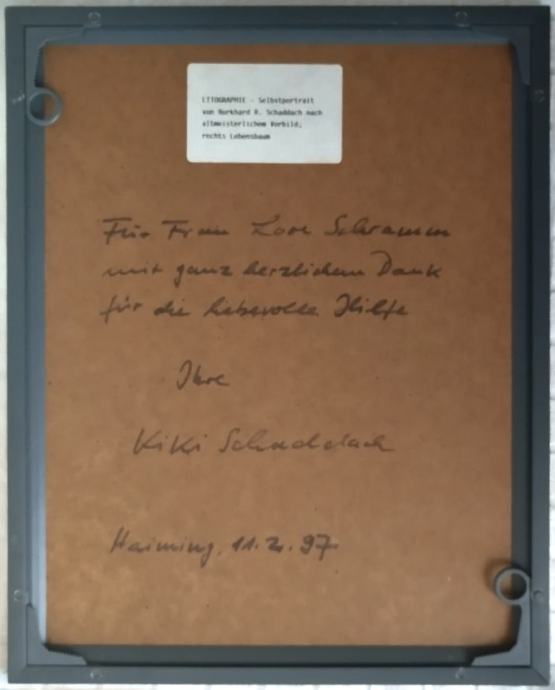 LITOGRAPHIE - Selbstportrait
von Burkhard R. Schaddach nach
altmeisterlichem Vorbild,
rechts Lebensbaum
Für Frau Loor Schramm
mit ganz herzlichem Dank
für die liebevolle Hilfe
Ihre
Kiki Schaddach
Haiming, 11.2.97